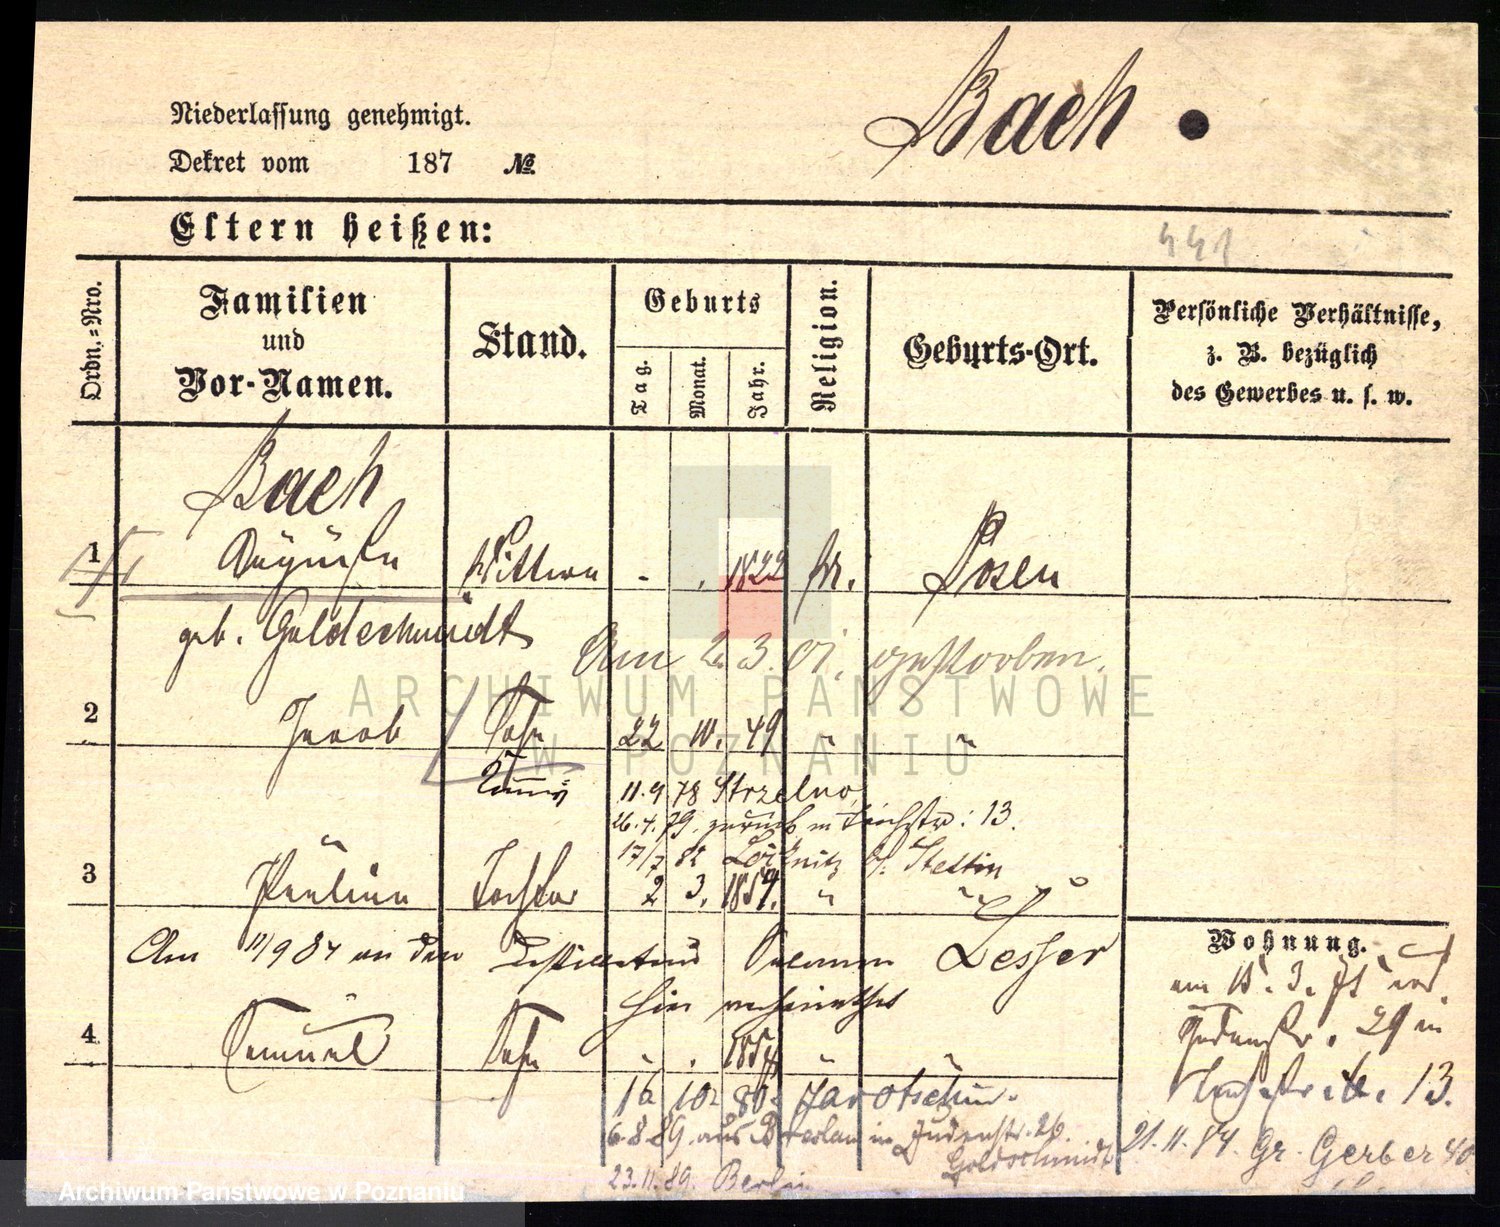 Bach
Niederlassung genehmigt.
Dekret vom 187 №
Eltern heißen:
441
Ordn.-Nro.
Familien und Vor-Namen.
Stand.
Geburts
Tag.
Monat.
Jahr.
Religion.
Geburts-Ort.
Persönliche Verhältnisse,
z. B. bezüglich
des Gewerbes u. s. w.
Bach
1 Auguste Wittwe - . 1822 Posen
geb. Goldschmidt
Am 2. 3. 01. gestorben.
ARCHIWUM PAŃSTWOWE
W POZNANIU
2 Jacob Sohn 22 10. 49 " "
11.9.78 Strzelno
26.4.79. zurück in Teichstr: 13.
17/7 82 Löcknitz b. Stettin
3 Pauline Tochter 2 3. 1854. " "
Am 11/9 84 an den Destillateur Salomon Lesser
hier verheirathet
4 Samuel Sohn " . 1857 " "
16 10. 80. Jarotschin.
6.8.89. aus Breslau in Judenstr. 26.
Goldschmidt
23.11.89. Berlin
Wohnung.
am 15. 3. 75 von
Judenstr. 29 in
13.
21.11.84. Gr. Gerber 40
Archiwum Państwowe w Poznaniu